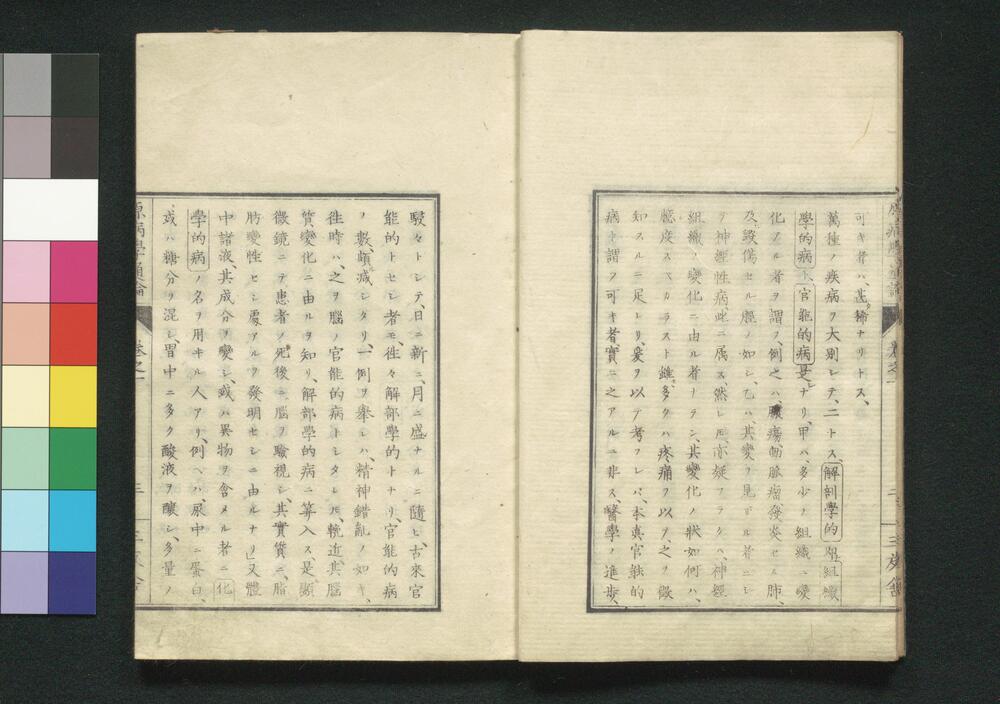 可キ者ハ、甚稀ナリトス、
萬種ノ疾病ヲ大別シテ、二トス、解剖學的組織
學的病ト、官能的病是ナリ、甲ハ、多少ノ組織ニ變
化アル者ヲ謂フ、例之ハ、膿瘍、動脈瘤發炎セル肺、
及毀傷セル脛ノ如シ、乙ハ其變ヲ見ザル者ニシ
ヲ神經性病此ニ属ス、然レ𪜈亦疑フラクハ、神經
組織ノ變化ニ由ル者ナラン、其變化ノ狀如何ハ、
臆度スヘカラスト雖、多クハ疼痛ヲ以テ、之ヲ
知スルニ足レリ、爰ヲ以テ考フレハ、本眞官能的
病ト謂フ可キ者、實ニ之アルニ非ス、醫學ノ進歩、
駸々トシテ、日ニ新ニ、月ニ盛ナルニ隨ヒ、古來官
能的トセシ者モ、徃々解部學的トナリ、官能的病
ノ數、頗減シタリ、一例ヲ擧レハ、精神錯亂ノ如キ、
徃時ハ、之ヲ腦ノ官能的病トシタレ𪜈、輓近其腦
質變化ニ由ルヲ知リ、解部學的病ニ筭入ス是、顯
微鏡ニテ患者ノ死後ニ腦ヲ驗視シ、其實質ニ、脂
肪變性セシ處アルヲ發明セシニ由ルナリ」又體
中諸液、其成分ヲ變シ、或ハ異物ヲ含メル者ニ化
學的病ノ名ヲ用キル人アリ、例ヘハ、尿中ニ蛋白、
或ハ糖分ヲ混シ、胃中ニ多ク酸液ヲ釀シ、多量ノ
原病學通論
卷之一
三